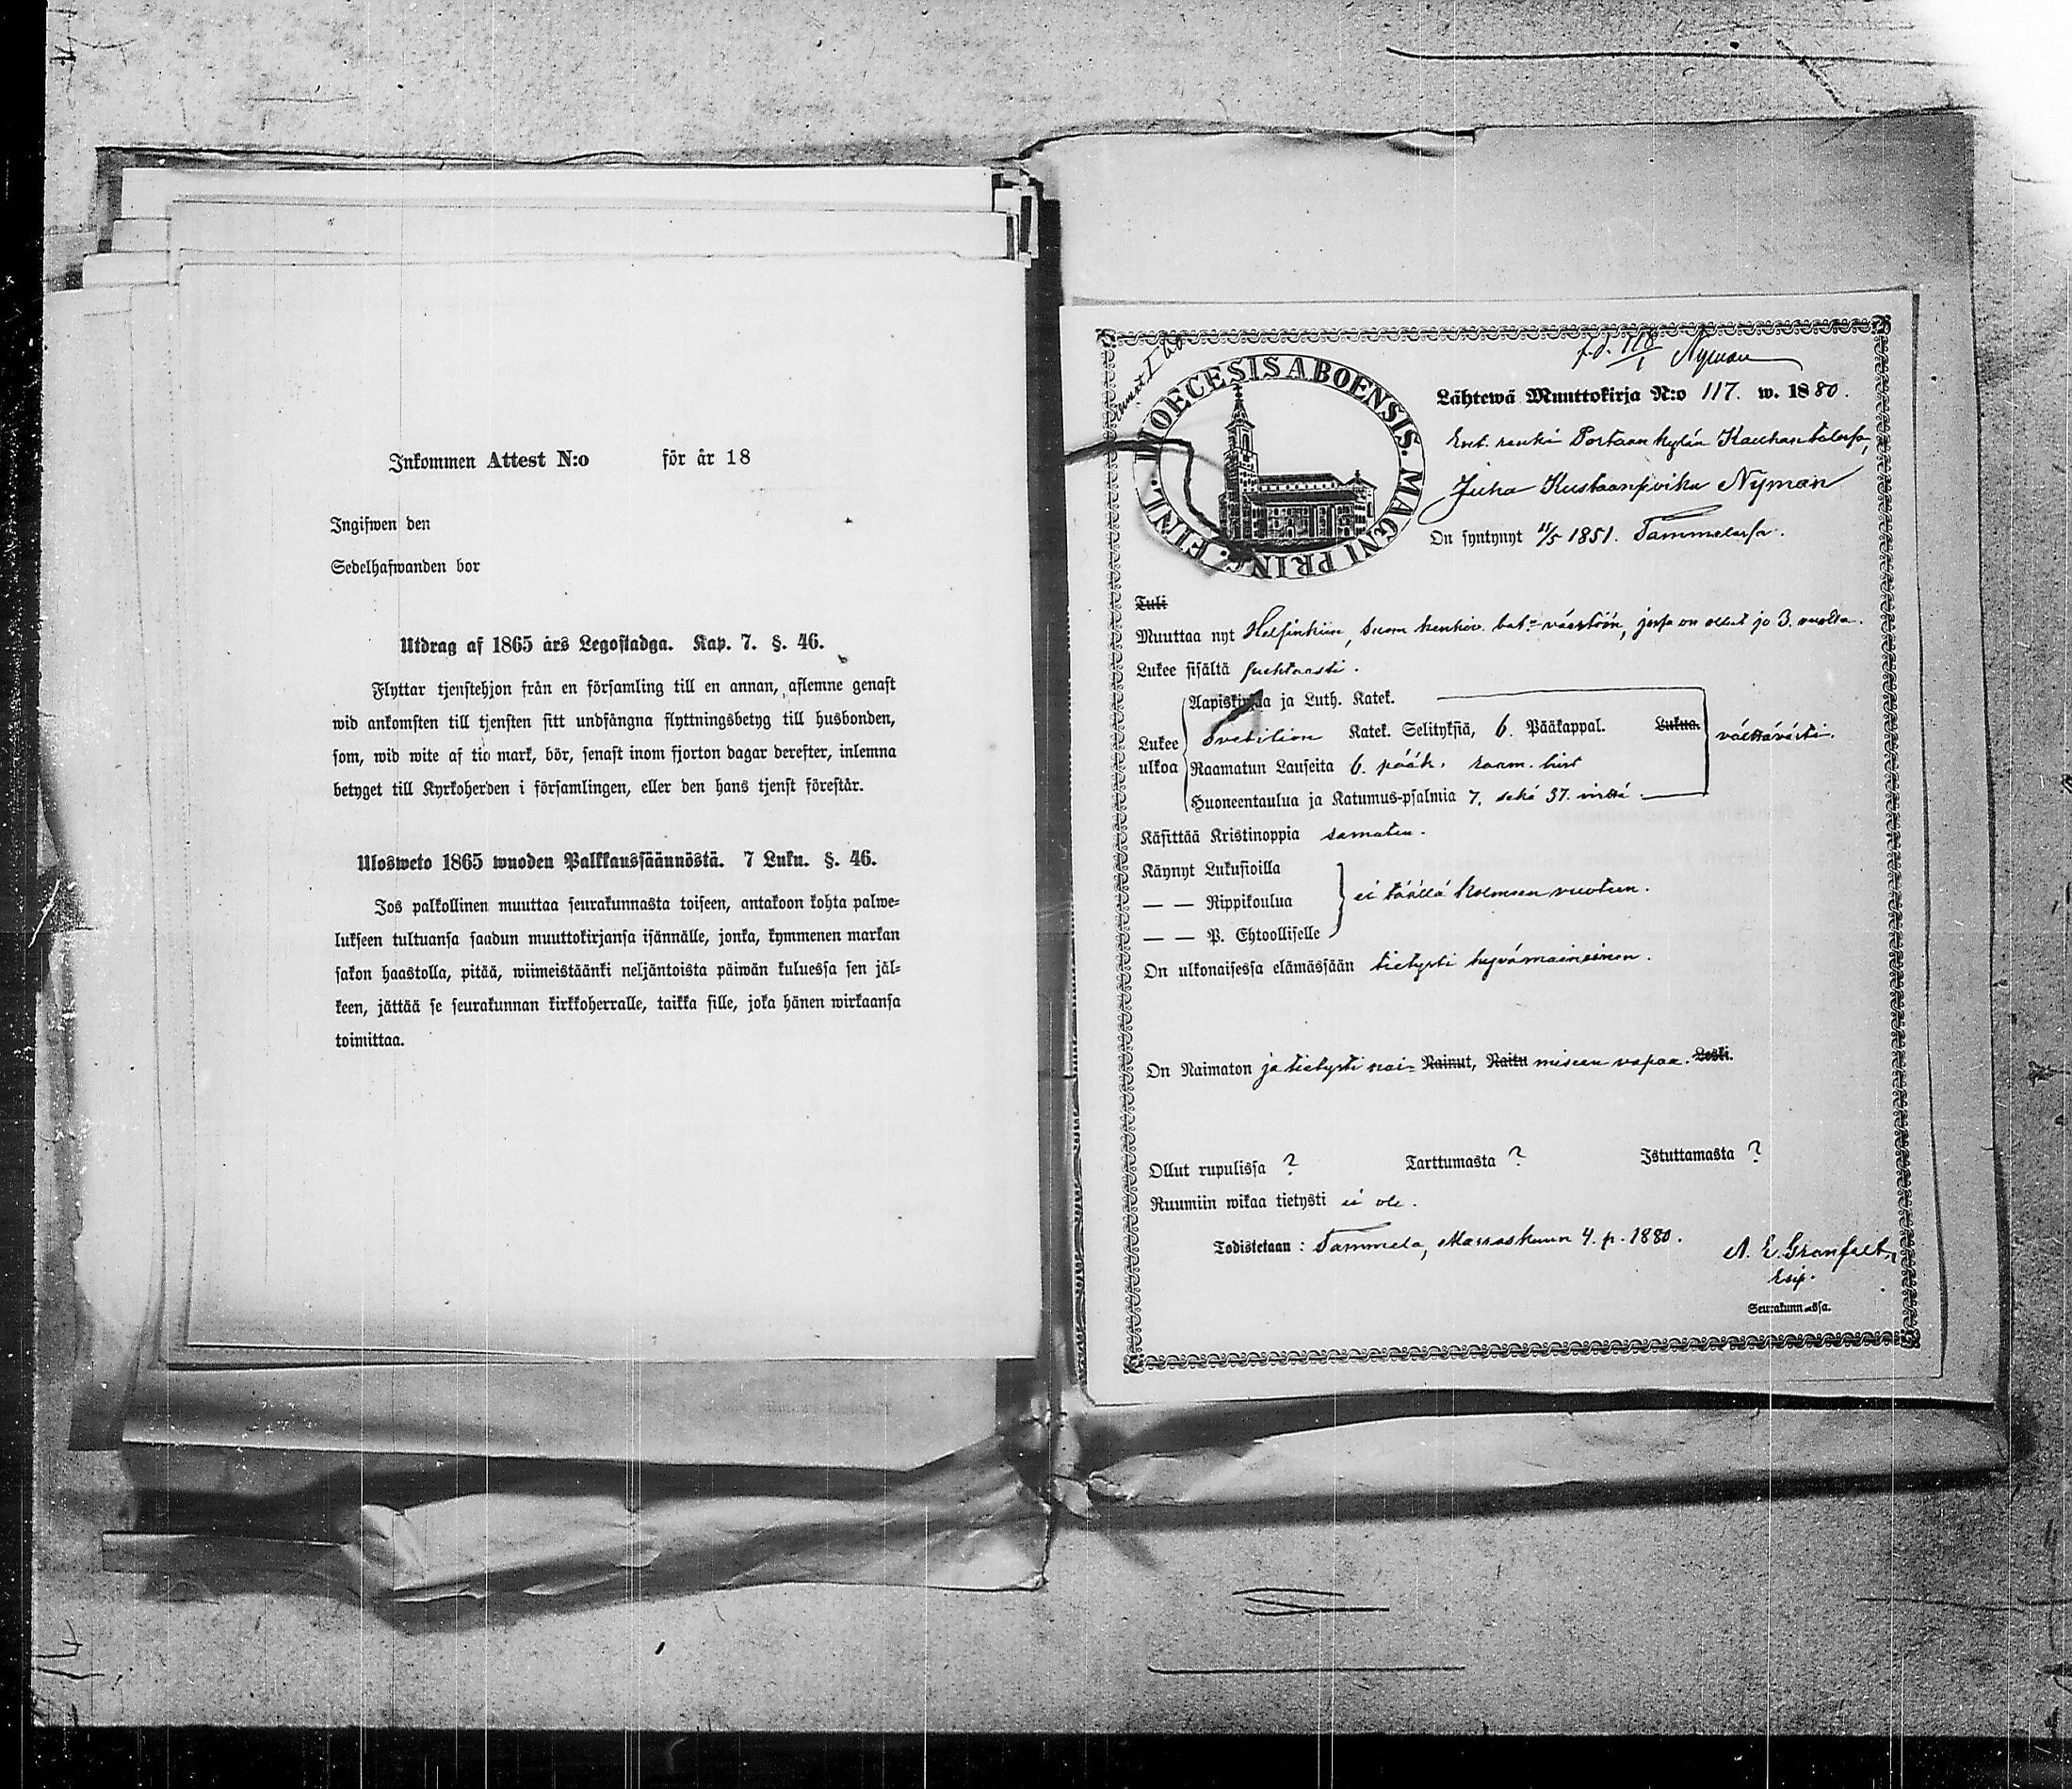 Inkommen Attest N:o för år 18
Ingifwen den
Sedelhafwanden bor
Utdrag af 1865 års Legostadga. Kap. 7. §. 46.
Flyttar tjenstehjon från en församling till en annan, aflemne genast
wid ankomsten till tjensten sitt undfångna flyttningsbetyg till husbonden,
som, wid wite af tio mark, bör, senast inom fjorton dagar derefter, inlemna
betyget till Kyrkoherden i församlingen, eller den hans tjenst förestår.
Ulosweto 1865 wuoden Palkkaussäännöstä. 7 Luku. §. 46.
Jos palkollinen muuttaa seurakunnasta toiseen, antakoon kohta palwe=
lukseen tultuansa saadun muuttokirjansa isännälle, jonka, kymmenen markan
sakon haastolla, pitää, wiimeistäänki neljäntoista päiwän kuluessa sen jäl=
keen, jättää se seurakunnan kirkkoherralle, taikka sille, joka hänen wirkaansa
toimittaa.
Nyman
DIOECESIS ABOENSIS. MAGNI PRINC. FINL.
Lähtewä Muuttokirja N:o 117. w. 1880.
Ent. renki Portaan kylän
Juha Kustaanpoika Nyman
On syntynyt 11/5 1851. Tammelassa.
Tuli
Muuttaa nyt Helsinkiin, Suom. bat:n väestöön, jossa on ollut jo 3. vuotta.
Lukee sisältä puhtaasti.
Aapiskirjaa ja Luth. Katek.
Lukee ulkoa Svebilion Katek. Selityksiä, 6. Pääkappal. Lukua. välttävästi.
Raamatun Lauseita 6. pääk. raam. hist
Huoneentaulua ja Katumus-psalmia 7. sekä 37. virttä.
Käsittää Kristinoppia samaten.
Käynyt Lukusioilla
— — Rippikoulua ei täällä kolmeen vuoteen.
— — P. Ehtoolliselle
On ulkonaisessa elämässään tietysti hyvämaineinen.
On Naimaton ja tietysti nai= Nainut, Naitu miseen vapaa. Leski.
Ollut rupulissa ? Tarttumasta ? Istuttamasta ?
Ruumiin wikaa tietysti ei ole.
Todistetaan: Tammela, Marraskuun 4. p. 1880.
A. E. Granfelt,
Seurakunnassa.